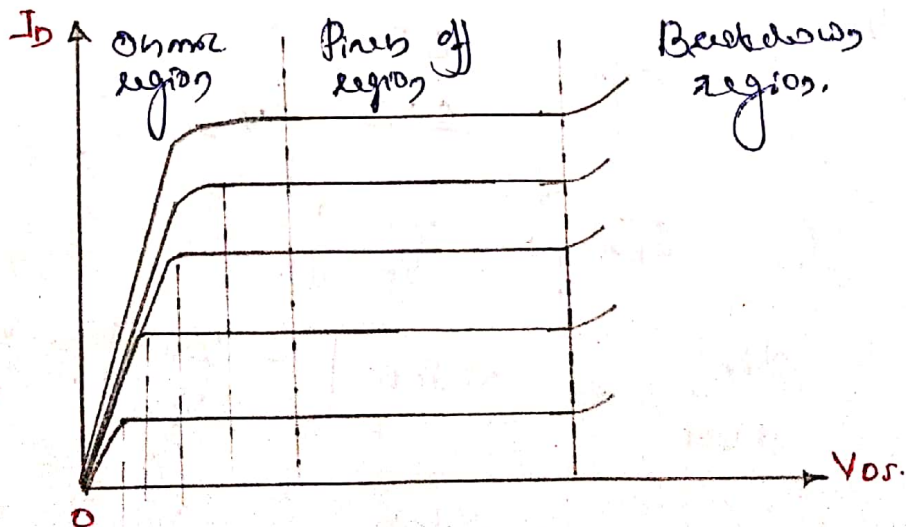 I_D
Ohmic
region
Pinch off
region
Breakdown
region.
V_DS.
0